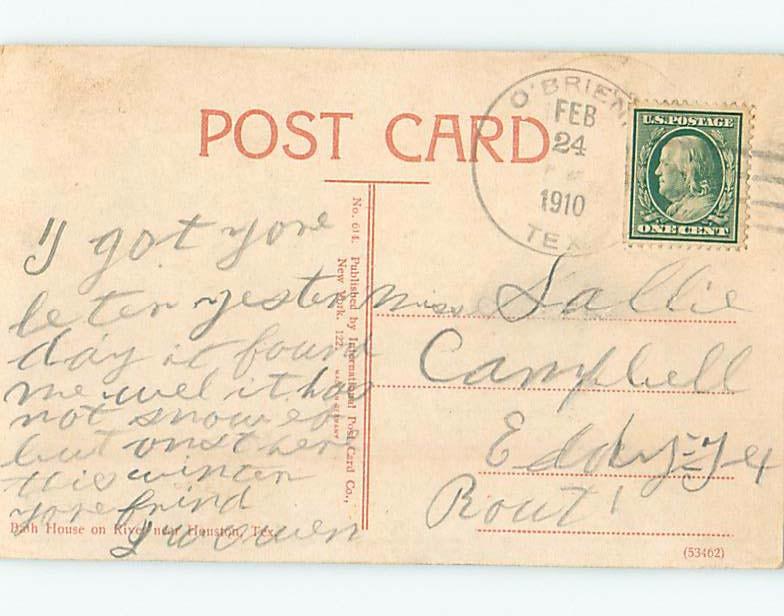 POST CARD
O'BRIEN
FEB
24
1910
TEX
U.S. POSTAGE
ONE CENT
I got yore
leter yester
day it found
me wel it has
not snowed
but onst here
this winter
yore frind
No. 614. Published by International Post Card Co.,
New York. 122.
Miss Sallie
Campbell
Eddy Tex
Rout 1
Bath House on River near Houston, Tex.
(53462)